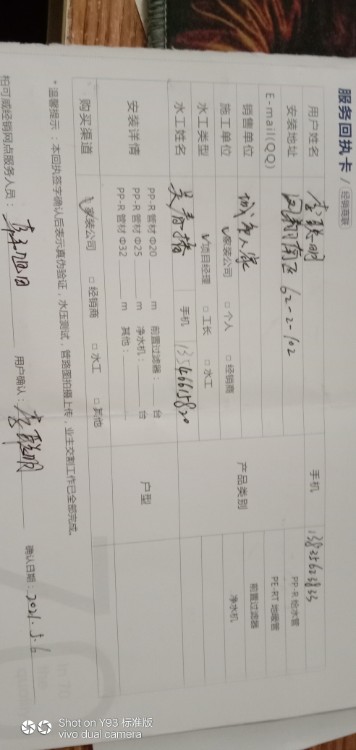 服务回执卡 / 经销商联
用户姓名 李联明 手机
安装地址 62-2-102 PP-R 给水管
E-mail(QQ) PE-RT 地暖管
销售单位 城市人家 产品类别 前置过滤器
施工单位 √家装公司 □个人 □经销商 净水机
水工类型 √项目经理 □工长 □水工
水工姓名 手机
安装详情 PP-R 管材 Φ20 m 前置过滤器: 台 户型
PP-R 管材 Φ25 m 净水机: 台
PP-R 管材 Φ32 m 其他:
购买渠道 √家装公司 □经销商 □水工 □其他
*温馨提示:本回执签字确认后表示真伪验证,水压测试,管路图拍摄上传,业主交割工作已全部完成。
柏可威经销网点服务人员: 用户确认:李联明 确认日期:2021.5.6
Shot on Y93 标准版
vivo dual camera